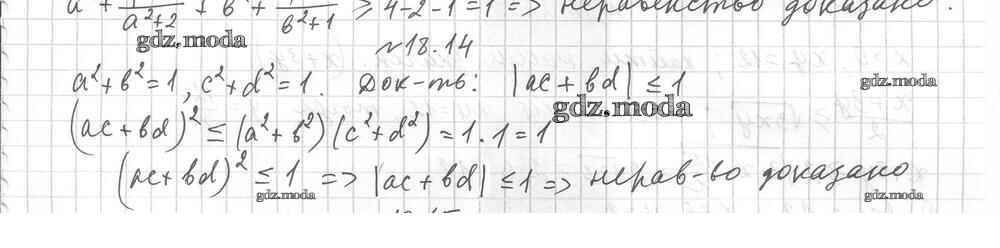 a + 1/(a²+2) + b² + 1/(b²+1) ≥ 4-2-1=1 => неравенство доказано.
gdz.moda
№18.14
a²+b²=1, c²+d²=1. Док-ть: |ac+bd| ≤ 1
gdz.moda
gdz.moda
(ac+bd)² ≤ (a²+b²)(c²+d²) = 1·1 = 1
(ac+bd)² ≤ 1 => |ac+bd| ≤ 1 => нерав-во доказано
gdz.moda
gdz.moda